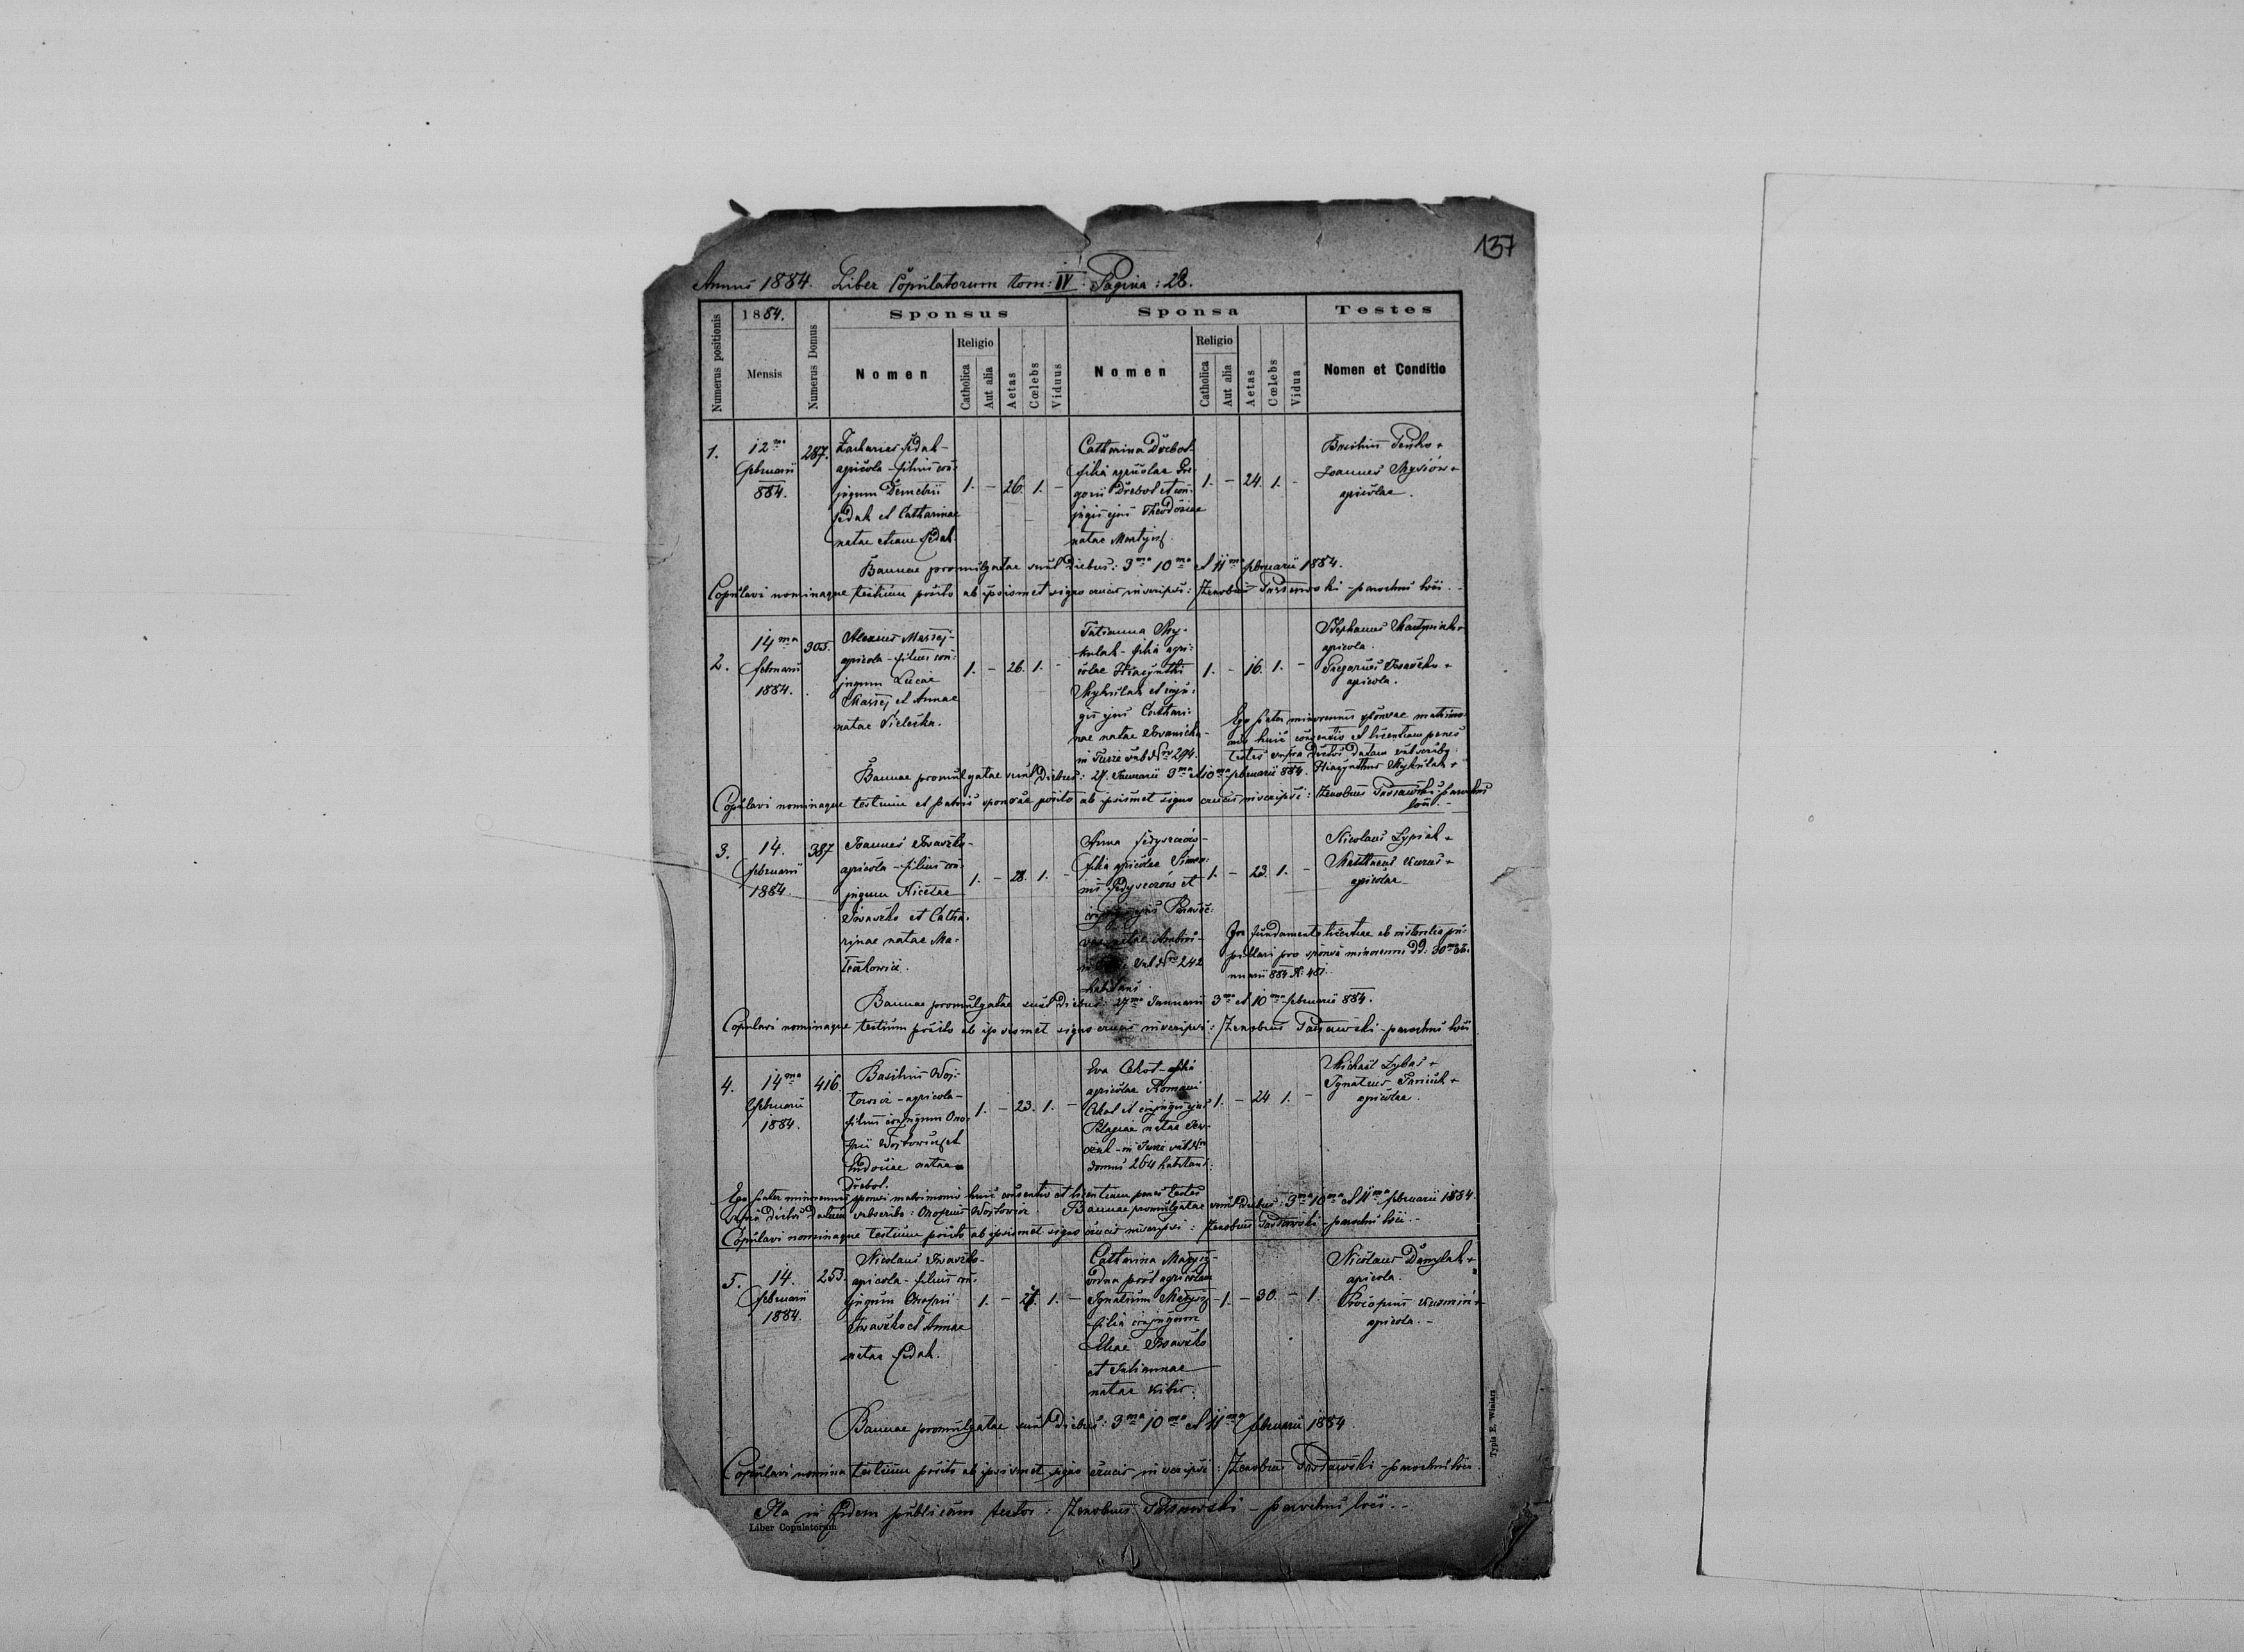 137
Annus 1884. Liber Copulatorum tom: IV. Pagina: 28.
Numerus positionis
1884.
Mensis
Numerus Domus
Sponsus
Sponsa
Testes
Nomen
Religio
Catholica
Aut alia
Aetas
Cœlebs
Viduus
Nomen
Religio
Catholica
Aut alia
Aetas
Cœlebs
Vidua
Nomen et Conditio
1.
12ma
februarii
884.
287.
Zacharias Fedak -
agricola - filius con:
jugum Demetrii
Fedak et Catharinae
natae etiam Fedak.
1. - 26. 1. -
Catharina Drebot
filia agricolae Gre
gorii Drebot et con:
jugis ejus Theodosiae
natae
1. - 24. 1. -
Basilius +
Joannes +
agricolae.
Bannae promulgatae sunt diebus: 3ma 10ma et 11ma februarii 1884.
Copulavi nominaque testium posito ab ipsismet signo crucis inscripsi: Zenobius - parochus loci. -
2.
14ma
februarii
1884.
305.
Alexius
agricola - filius con:
jugum Lucae
et Annae
natae
1. - 26. 1. -
Tatianna My-
kulak - filia agri:
colae Hiacynthi
Mykulak et conju:
gis ejus Cathari:
nae natae
in sub Nro 294.
1. - 16. 1. -
Stephanus +
agricola.
Gregorius Iwaszko +
agricola.
Ego pater minorennis sponsae matrimo
nio huic consentio et licentiam penes
testes supra dictos datam subscribo:
Hiacynthus Mykulak +
Bannae promulgatae sunt diebus: 27. Januarii 3ma et 10ma februarii 884.
Copulavi nominaque testium et patris sponsae posito ab ipsismet signo crucis inscripsi: Zenobius parochus
loci. -
3.
14.
februarii
1884.
387
Joannes Iwaszko -
agricola - filius con:
jugum Nicetae
Iwaszko et Catha:
rinae natae Ma:
1. - 28. 1. -
Anna
filia agricolae Simeo:
nis et
conjugis ejus
natae
sub Nro 242
habitans.
1. - 23. 1. -
Nicolaus +
Matthaeus +
agricolae -
In fundamento licentiae ab pu:
pillari pro sponsa minorenni dd: 30ma Ja:
nuarii 884 N:
Bannae promulgatae sunt diebus: 27ma Januarii 3ma et 10ma februarii 884.
Copulavi nominaque testium posito ab ipsismet signo crucis inscripsi: Zenobius - parochus loci
4.
14ma
februarii
1884.
416.
Basilius Woj:
towicz - agricola -
filius conjugum Ono:
frii Wojtowicz et
Eudociae natae
Drebot.
1. - 23. 1. -
Eva - filia
agricolae Romani
et conjugis ejus
Pelagiae natae
- in sub Nro
domus 264 habitans:
1. - 24 1. -
Michael +
Ignatius +
agricolae.
Ego pater minorennis sponsi matrimonio huic consentio et licentiam penes testes
supra dictos datam subscribo: Onofrius Wojtowicz. Bannae promulgatae sunt diebus: 3ma 10ma et 11ma februarii 1884.
Copulavi nominaque testium posito ab ipsismet signo crucis inscripsi: Zenobius - parochus loci. -
5.
14.
februarii
1884.
253.
Nicolaus Iwaszko -
agricola - filius con:
jugum Onofrii
Iwaszko et Annae
natae Fedak.
1. - 1. -
Catharina
vidua post agricolam
Ignatium
filia conjugum
Eliae Iwaszko
et Tatiannae
natae
- 1. - 30. - 1.
Nicolaus Danylak +
agricola.
Procopius +
agricola. -
Bannae promulgatae sunt diebus: 3ma 10ma et 11ma februarii 1884
Copulavi nomina testium posito ab ipsismet signo crucis inscripsi: Zenobius - parochus loci.
Ita in fidem publicam testor: Zenobius - parochus loci. -
Liber Copulatorum
Typis E. Winiarz